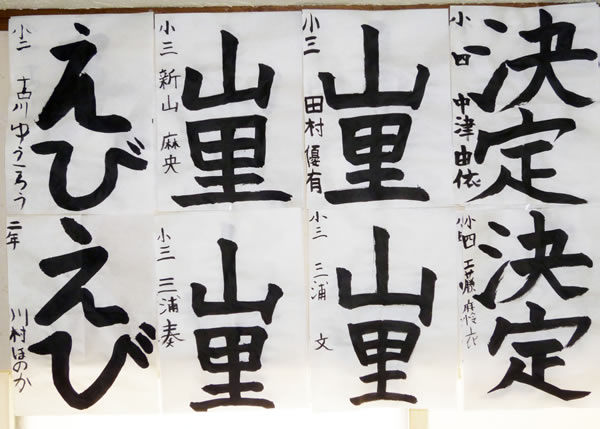 決定
小四 中津由依
山里
小三 田村優有
山里
小三 新山麻央
えび
小二
決定
小四 工藤
山里
小三 三浦文
山里
小三 三浦奏
えび
二年 川村ほのか